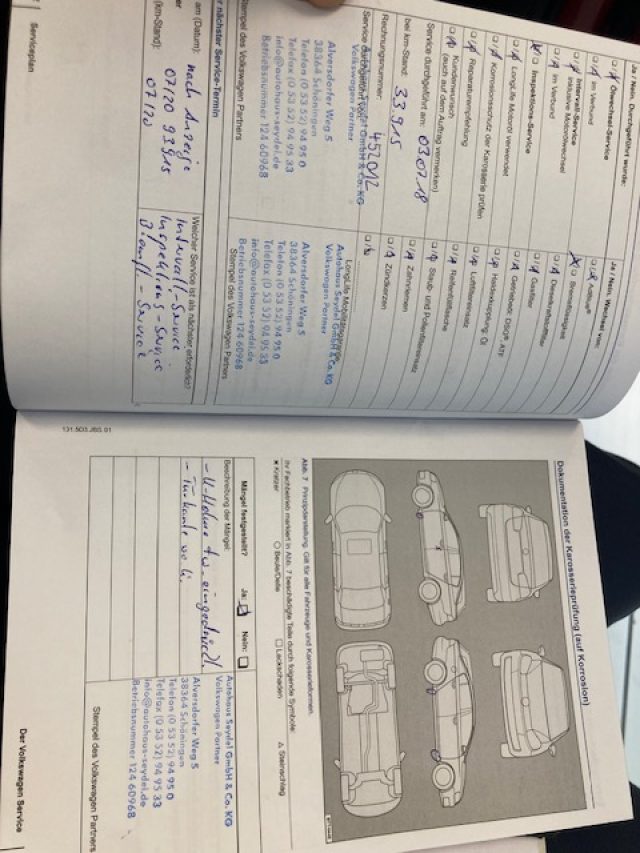 Ja / Nein, Durchgeführt wurde:
Ölwechsel-Service
im Verbund
Intervall-Service
inklusive Motorölwechsel
im Verbund
Inspektions-Service
LongLife Motoröl verwendet
Korrosionsschutz der Karosserie prüfen
Reparaturempfehlung
Kundenwunsch
(auch auf dem Auftrag vermerken)
Service durchgeführt am: 03.07.18
bei km-Stand: 33915
Rechnungsnummer: 452012
Service durchgeführt von:
Autohaus Seydel GmbH & Co. KG
Volkswagen Partner
Alversdorfer Weg 5
38364 Schöningen
Telefon (0 53 52) 94 95 0
Telefax (0 53 52) 94 95 33
info@autohaus-seydel.de
Betriebsnummer 124 60968
Stempel des Volkswagen Partners
Ja / Nein, Wechsel von:
AdBlue®
Bremsflüssigkeit
Dieselkraftstofffilter
Gasfilter
Getriebeöl: DSG®, ATF
Haldexkupplung: Öl
Luftfiltereinsatz
Reifenfüllflasche
Staub- und Pollenfiltereinsatz
Zahnriemen
Zündkerzen
LongLife Mobilitätsgarantie
Autohaus Seydel GmbH & Co. KG
Volkswagen Partner
Alversdorfer Weg 5
38364 Schöningen
Telefon (0 53 52) 94 95 0
Telefax (0 53 52) 94 95 33
info@autohaus-seydel.de
Betriebsnummer 124 60968
Stempel des Volkswagen Partners
nächster Service-Termin
am (Datum):
nach Anzeige
07/20 93915
07/20
(km-Stand):
Welcher Service ist als nächster erforderlich?
Intervall-Service
Inspektions-Service
Serviceplan
131.5D3.JBS.01
Dokumentation der Karosserieprüfung (auf Korrosion)
Abb. 7 Prinzipdarstellung: Gilt für alle Fahrzeuge und Karosserieformen.
Ihr Fachbetrieb markiert in Abb. 7 beschädigte Teile durch folgende Symbole:
× Kratzer ○ Beule/Delle □ Lackschaden △ Steinschlag
Mängel festgestellt? Ja: Nein:
Beschreibung der Mängel:
eingedrückt
- Türkante
Autohaus Seydel GmbH & Co. KG
Volkswagen Partner
Alversdorfer Weg 5
38364 Schöningen
Telefon (0 53 52) 94 95 0
Telefax (0 53 52) 94 95 33
info@autohaus-seydel.de
Betriebsnummer 124 60968
Stempel des Volkswagen Partners
Der Volkswagen Service